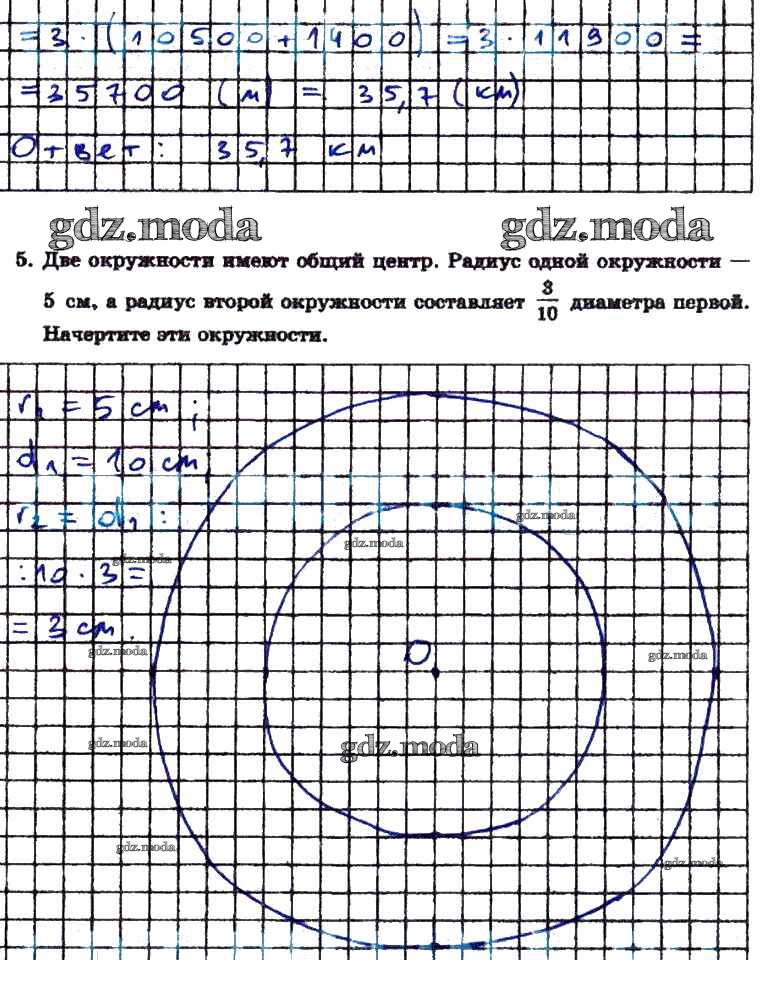 = 3 · (10500 + 1400) = 3 · 11900 =
= 35700 (м) = 35,7 (км)
Ответ: 35,7 км
gdz.moda gdz.moda
5. Две окружности имеют общий центр. Радиус одной окружности —
5 см, а радиус второй окружности составляет 3/10 диаметра первой.
Начертите эти окружности.
r₁ = 5 см;
d₁ = 10 см
r₂ = d₁ :
gdz.moda
gdz.moda
gdz.moda
: 10 · 3 =
= 3 см.
O
gdz.moda
gdz.moda
gdz.moda
gdz.moda
gdz.moda
gdz.moda